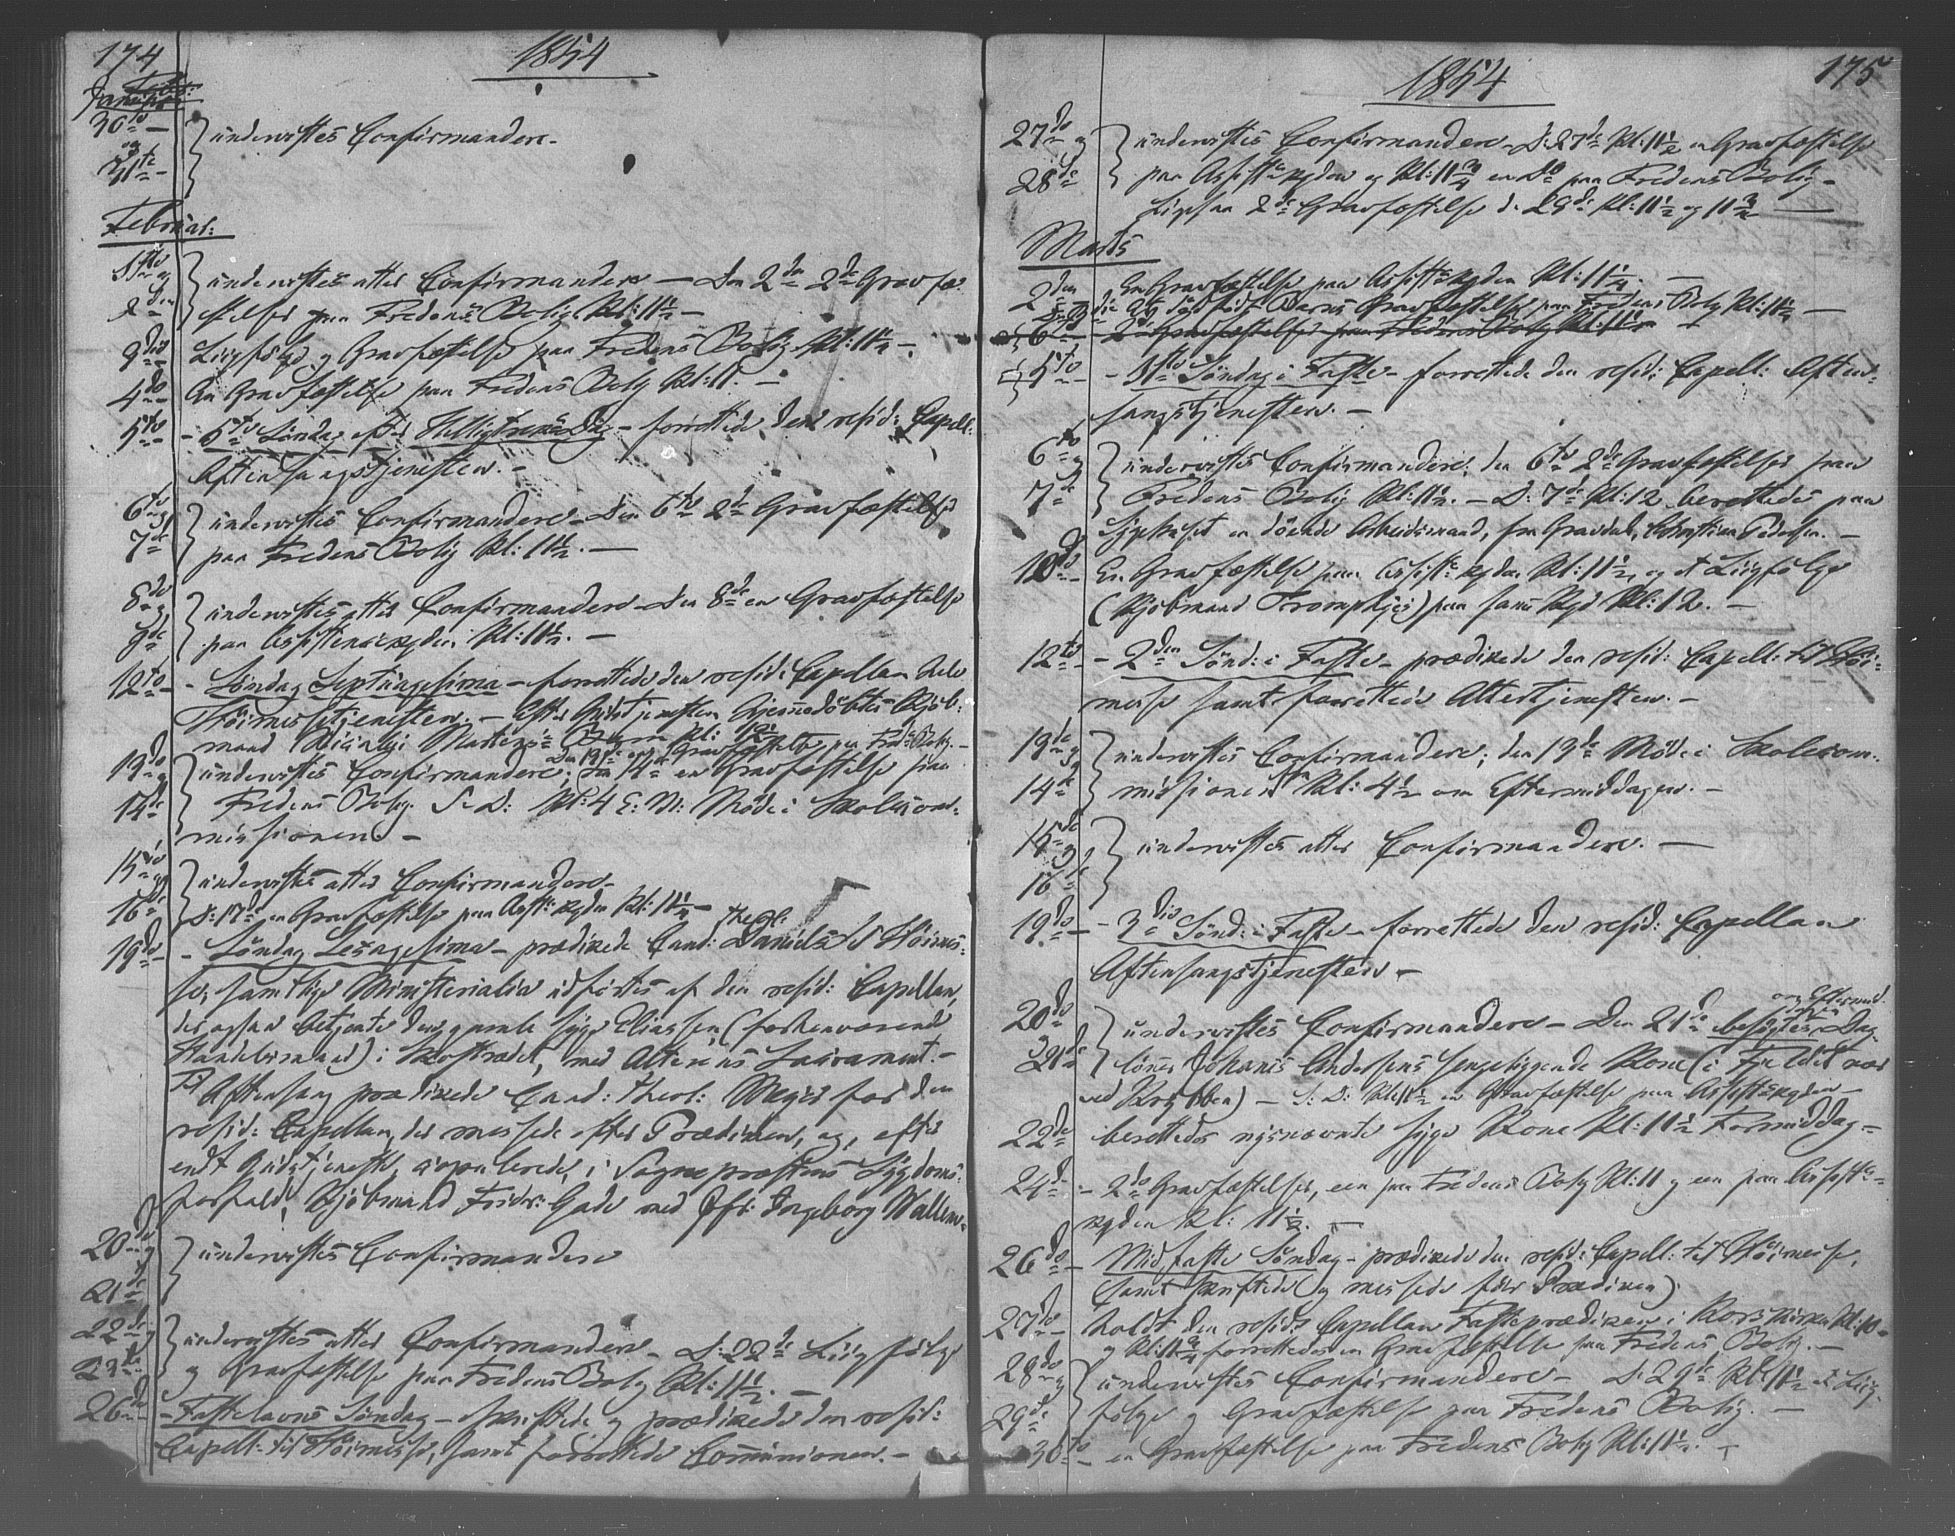 174
1854
Januar
30te
og
31te
undervistes Confirmandere.
Februar:
1ste og
2den
undervistes atter Confirmandere — Den 2den 2de Gravfæ-
stelser paa Fredens Bolig Kl: 11½ —
3die
Liigfølge og Gravfæstelse paa Fredens Bolig Kl: 11½ —
4de
En Gravfæstelse paa Fredens Bolig Kl: 11. —
5te
- 5te Søndag eft: Helligtrekongersdag - forrettede den resid: Capell:
Aftensangstjenesten. —
6te og
7de
undervistes Confirmandere — Den 6te 2de Gravfæstelser
paa Fredens Bolig Kl: 11½. —
8de og
9de
undervistes atter Confirmandere — Den 8de en Gravfæstelse
paa Assistenskgden Kl: 11½. —
12te
- Søndag Septuagesima - forrettede den resid: Capellan hele
Høimessetjenesten. — Efter Gudstjenesten hjemmedøbtes Kjøb-
mand Martens's Barn Kl:
13de og
14de
undervistes Confirmandere; den 14de en Gravfæstelse paa
Fredens Bolig. S. D: Kl: 4 E. M: Møde i Skolecom-
missionen. —
15de og
16de
undervistes atter Confirmandere —
D: 17de en Gravfæstelse paa Assts kgden Kl: 11½ —
19de
- Søndag Sexagesima - prædikede Cand: theol: Daniels til Høimes-
se; samtlige Ministerialia udførtes af den resid: Capellan,
der ogsaa betjente den gamle syge Eliassen (forhenværende
Handelsmand) i Kostrædet, med Alterens Sacrament. —
Til Aftensang prædikede Cand: theol: Meyer for den
resid: Capellan, der messede efter Prædiken, og, efter
endt Gudstjeneste, copulerede, i Sognepræstens Sygdoms-
forfald, Kjøbmand Fridr: Gade med Jfr: Ingeborg Wallem.
20de og
21de
undervistes Confirmandere
22de og
23de
undervistes atter Confirmandere — D: 22de Liigfølge
og Gravfæstelse paa Fredens Bolig Kl: 11½. —
26de
- Fastelavns Søndag - skriftede og prædikede den resid:
Capell: til Høimesse, samt forrettede Communionen. —
175
1854
27de og
28de
undervistes Confirmandere — D: 27de Kl: 11½ en Gravfæstelse
paa Assistkgden og Kl: 11¾ en Do paa Fredens Bolig —
Ligesaa 2de Gravfæstelser d: 28de Kl: 11½ og 11¾ —
Marts
2den
En Gravfæstelse paa Assistkgden Kl: 11¼. —
D: 3die et dødfødt Barns Gravfæstelse paa Fredens Bolig Kl: 11½ —
6te 2de Gravfæstelser paa Fredens Bolig Kl: 11½ —
5te
- 1ste Søndag i Faste - forrettede den resid: Capell: Aften-
sangstjenesten. —
6te og
7de
undervistes Confirmandere; den 6te 2de Gravfæstelser paa
Fredens Bolig Kl: 11½. — D: 7de Kl: 12 berettedes paa
Sygehuset en døende Arbeidsmand, fra Gravdal, Christian Pedersen. —
10de
En Gravfæstelse paa Assistkgden Kl: 11½, og et Liigfølge
(Kjøbmand ) paa samme Kgd Kl: 12. —
12te
- 2den Sønd: i Faste - prædikede den resid: Capell: til Høi-
messe samt forrettede Altertjenesten. —
13de og
14de
undervistes Confirmandere; den 13de Møde i Skolecom-
missionen Kl: 4½ om Eftermiddagen. —
15de og
16de
undervistes atter Confirmandere. —
19de
- 3die Sønd: i Faste - forrettede den resid: Capellan
Aftensangstjenesten —
20de og
21de
undervistes Confirmandere — Den 21de besøgtes om Eftermid. Dag-
lønner Johannes Andersens sengeliggende Kone (i Fjeldet
ved ) — S: D: Kl: 11½ en Gravfæstelse paa Assistkgden —
22de
berettedes nysnævnte syge Kone Kl: 11½ Formiddag —
24de
- 2de Gravfæstelser, een paa Fredens Bolig Kl: 11 og een paa Assist-
kgden Kl: 11½. —
26de
Midfaste Søndag - prædikede den resid: Capell: til Høimesse,
(samt skriftede og messede før Prædiken).
27de
holdt den resid: Capellan Fasteprædiken i Korskirken Kl: 10 -
og Kl: 11¾ forrettedes en Gravfæstelse paa Fredens Bolig. —
28de og
29de
undervistes Confirmandere — D: 29de Kl: 11½ et Liig-
følge og Gravfæstelse paa Fredens Bolig. —
30te
- en Gravfæstelse paa Fredens Bolig Kl: 11½. —